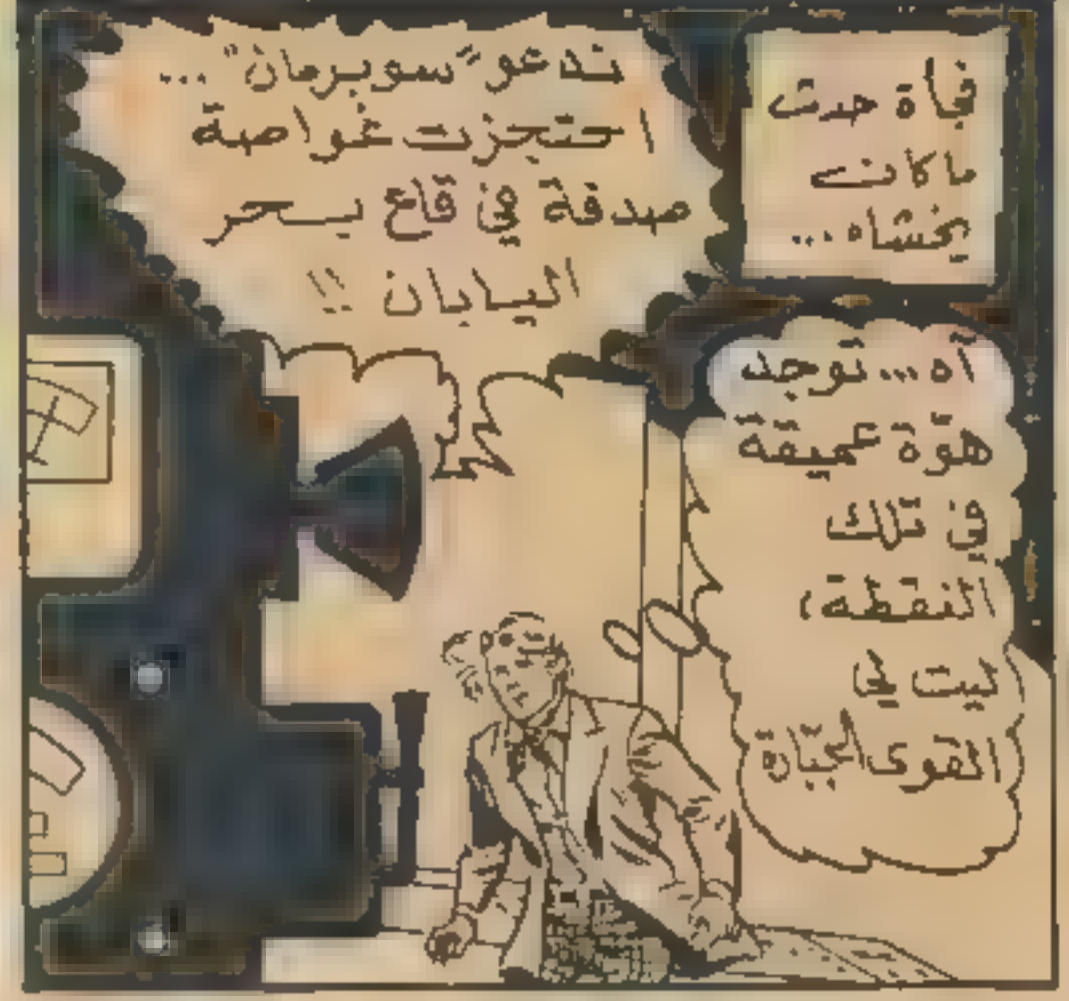 فجأة حدث
ما كانت
يخشاه...
ندعو "سوبرمان"...
احتجزت غواصة
صدفة في قاع بحر
اليابان !!
آه... توجد
هوّة عميقة
في تلك
النقطة،
ليت لي
القوى الجبّارة